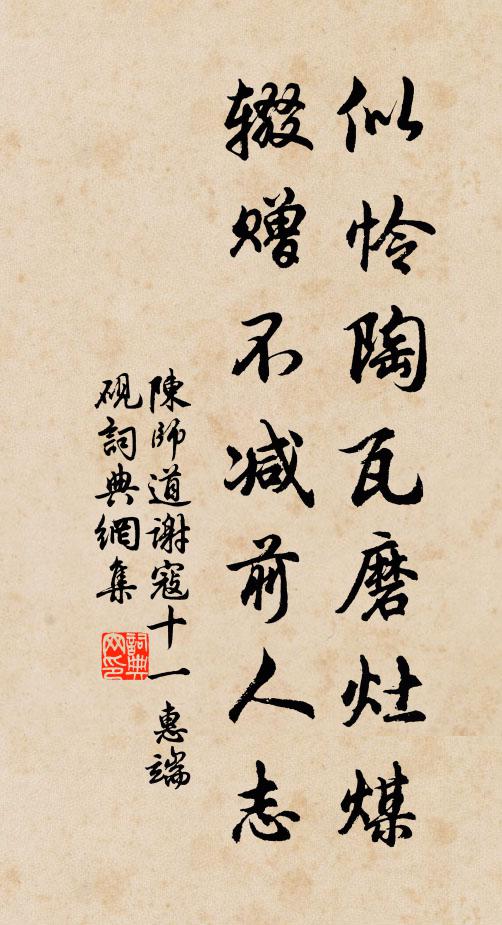 似怜陶瓦磨灶煤
辍赠不减前人志
陳師道谢寇十一惠端
砚詞典網集
詞典网印